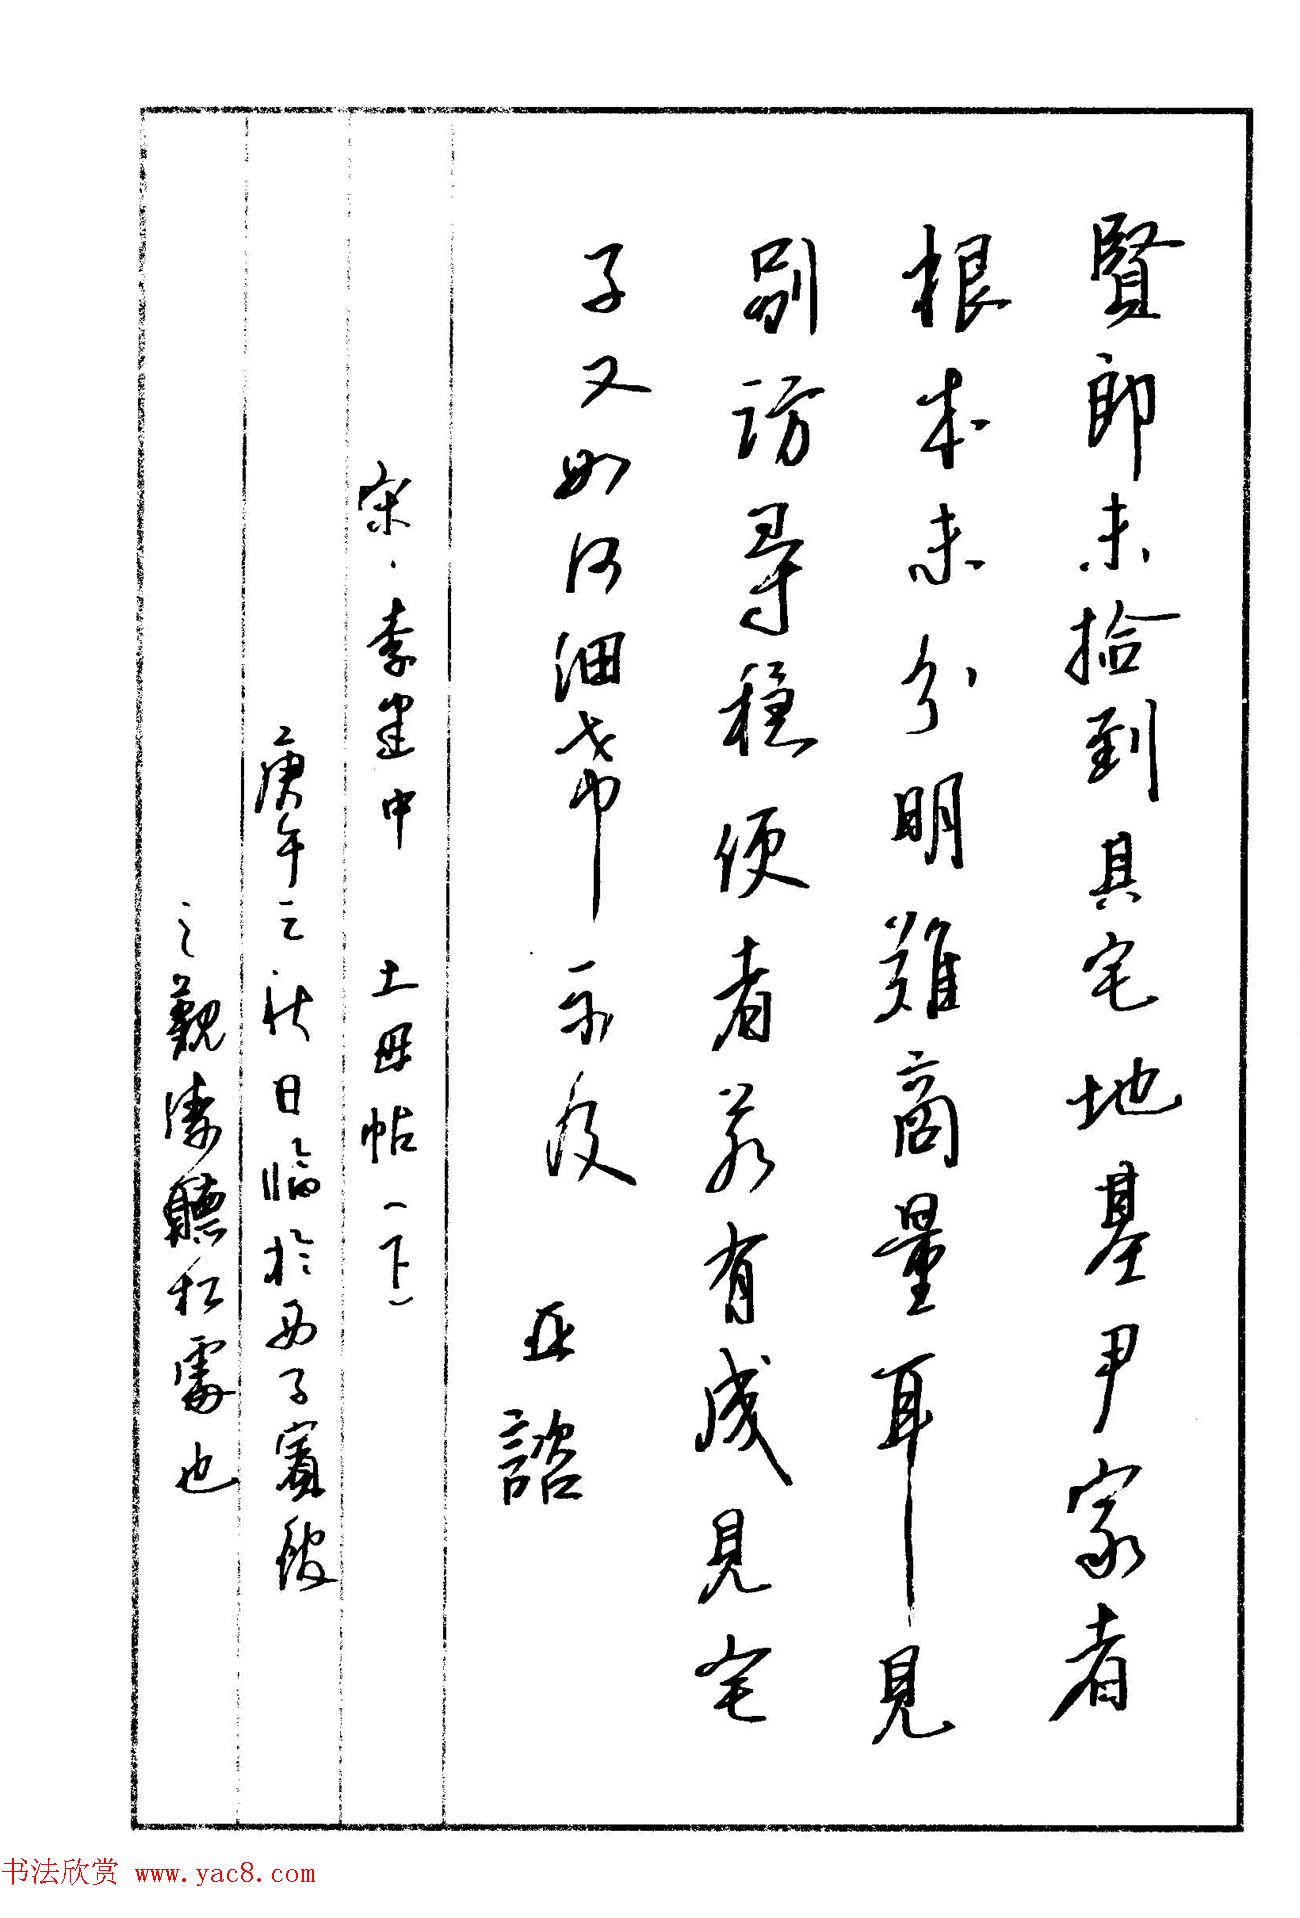 賢郎未拾到其宅地基尹家者
根本未分明難商量耳見
別訪尋穩便者若有成見宅
子又如何細希示及
亞諮
宋·李建中 土母帖(下)
庚午之秋日臨於西子賓館
之觀濤聽松處也
书法欣赏 www.yac8.com